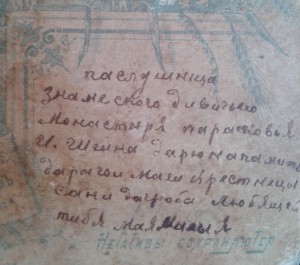 паслушница
знамеского дивичьго
Монастыря парасковья
И. Шгина дарю на память
дарагой маей крестницы
Сани до гроба любящей
тибя мая милыя
НЕГАТИВЫ СОХРАНЯЮТСЯ